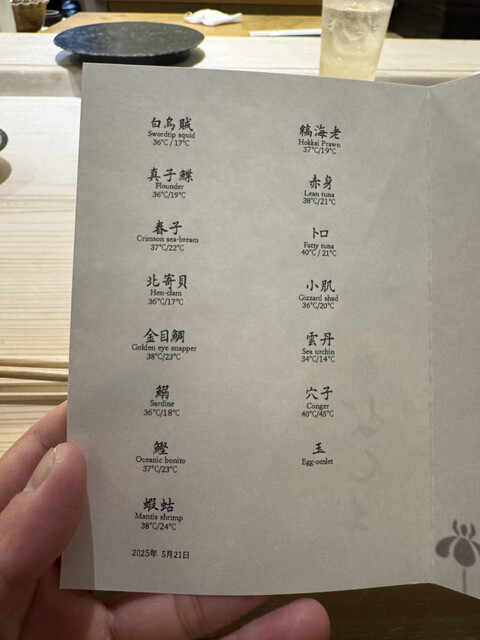 白烏賊
Swordtip squid
36℃ / 17℃
真子鰈
Flounder
36℃/19℃
春子
Crimson sea-bream
37℃/22℃
北寄貝
Hen-clam
36℃/17℃
金目鯛
Golden eye snapper
38℃/23℃
鰯
Sardine
36℃/18℃
鰹
Oceanic bonito
37℃/23℃
蝦蛄
Mantis shrimp
38℃/24℃
2025年 5月21日
縞海老
Hokkai Prawn
37℃/19℃
赤身
Lean tuna
38℃/21℃
トロ
Fatty tuna
40℃ / 21℃
小肌
Gizzard shad
36℃/20℃
雲丹
Sea urchin
34℃/14℃
穴子
Conger
40℃/45℃
玉
Egg-omlet